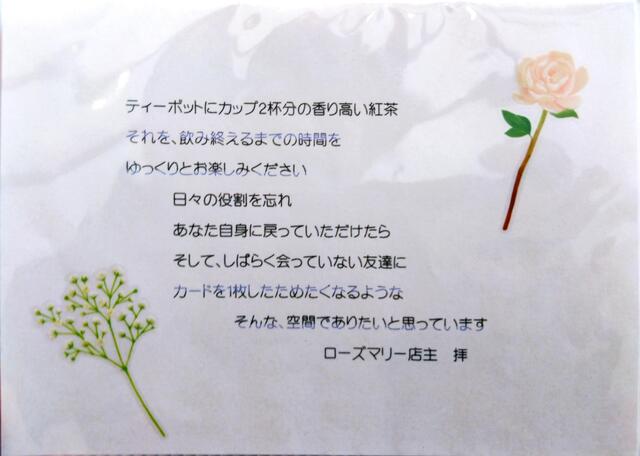 ティーポットにカップ2杯分の香り高い紅茶
それを、飲み終えるまでの時間を
ゆっくりとお楽しみください
日々の役割を忘れ
あなた自身に戻っていただけたら
そして、しばらく会っていない友達に
カードを1枚したためたくなるような
そんな、空間でありたいと思っています
ローズマリー店主　拝